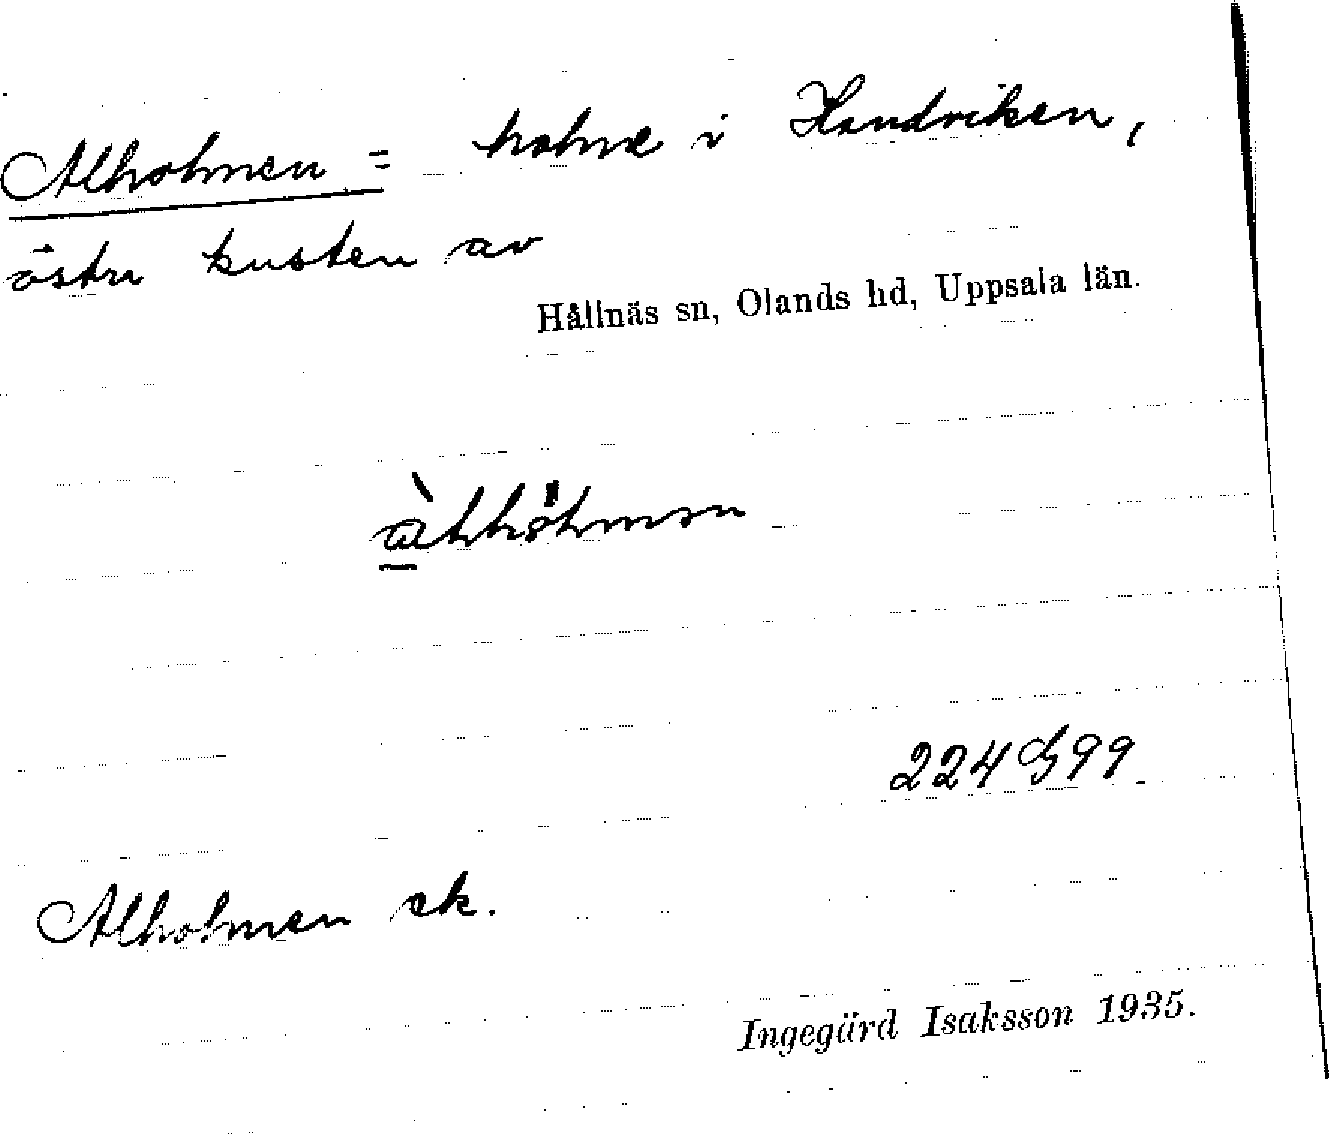 Alholmen = holme i Handviken,
östra kusten av
Hållnäs sn, Olands hd, Uppsala län.
224 G 99
Alholmen ek.
Ingegärd Isaksson 1935.